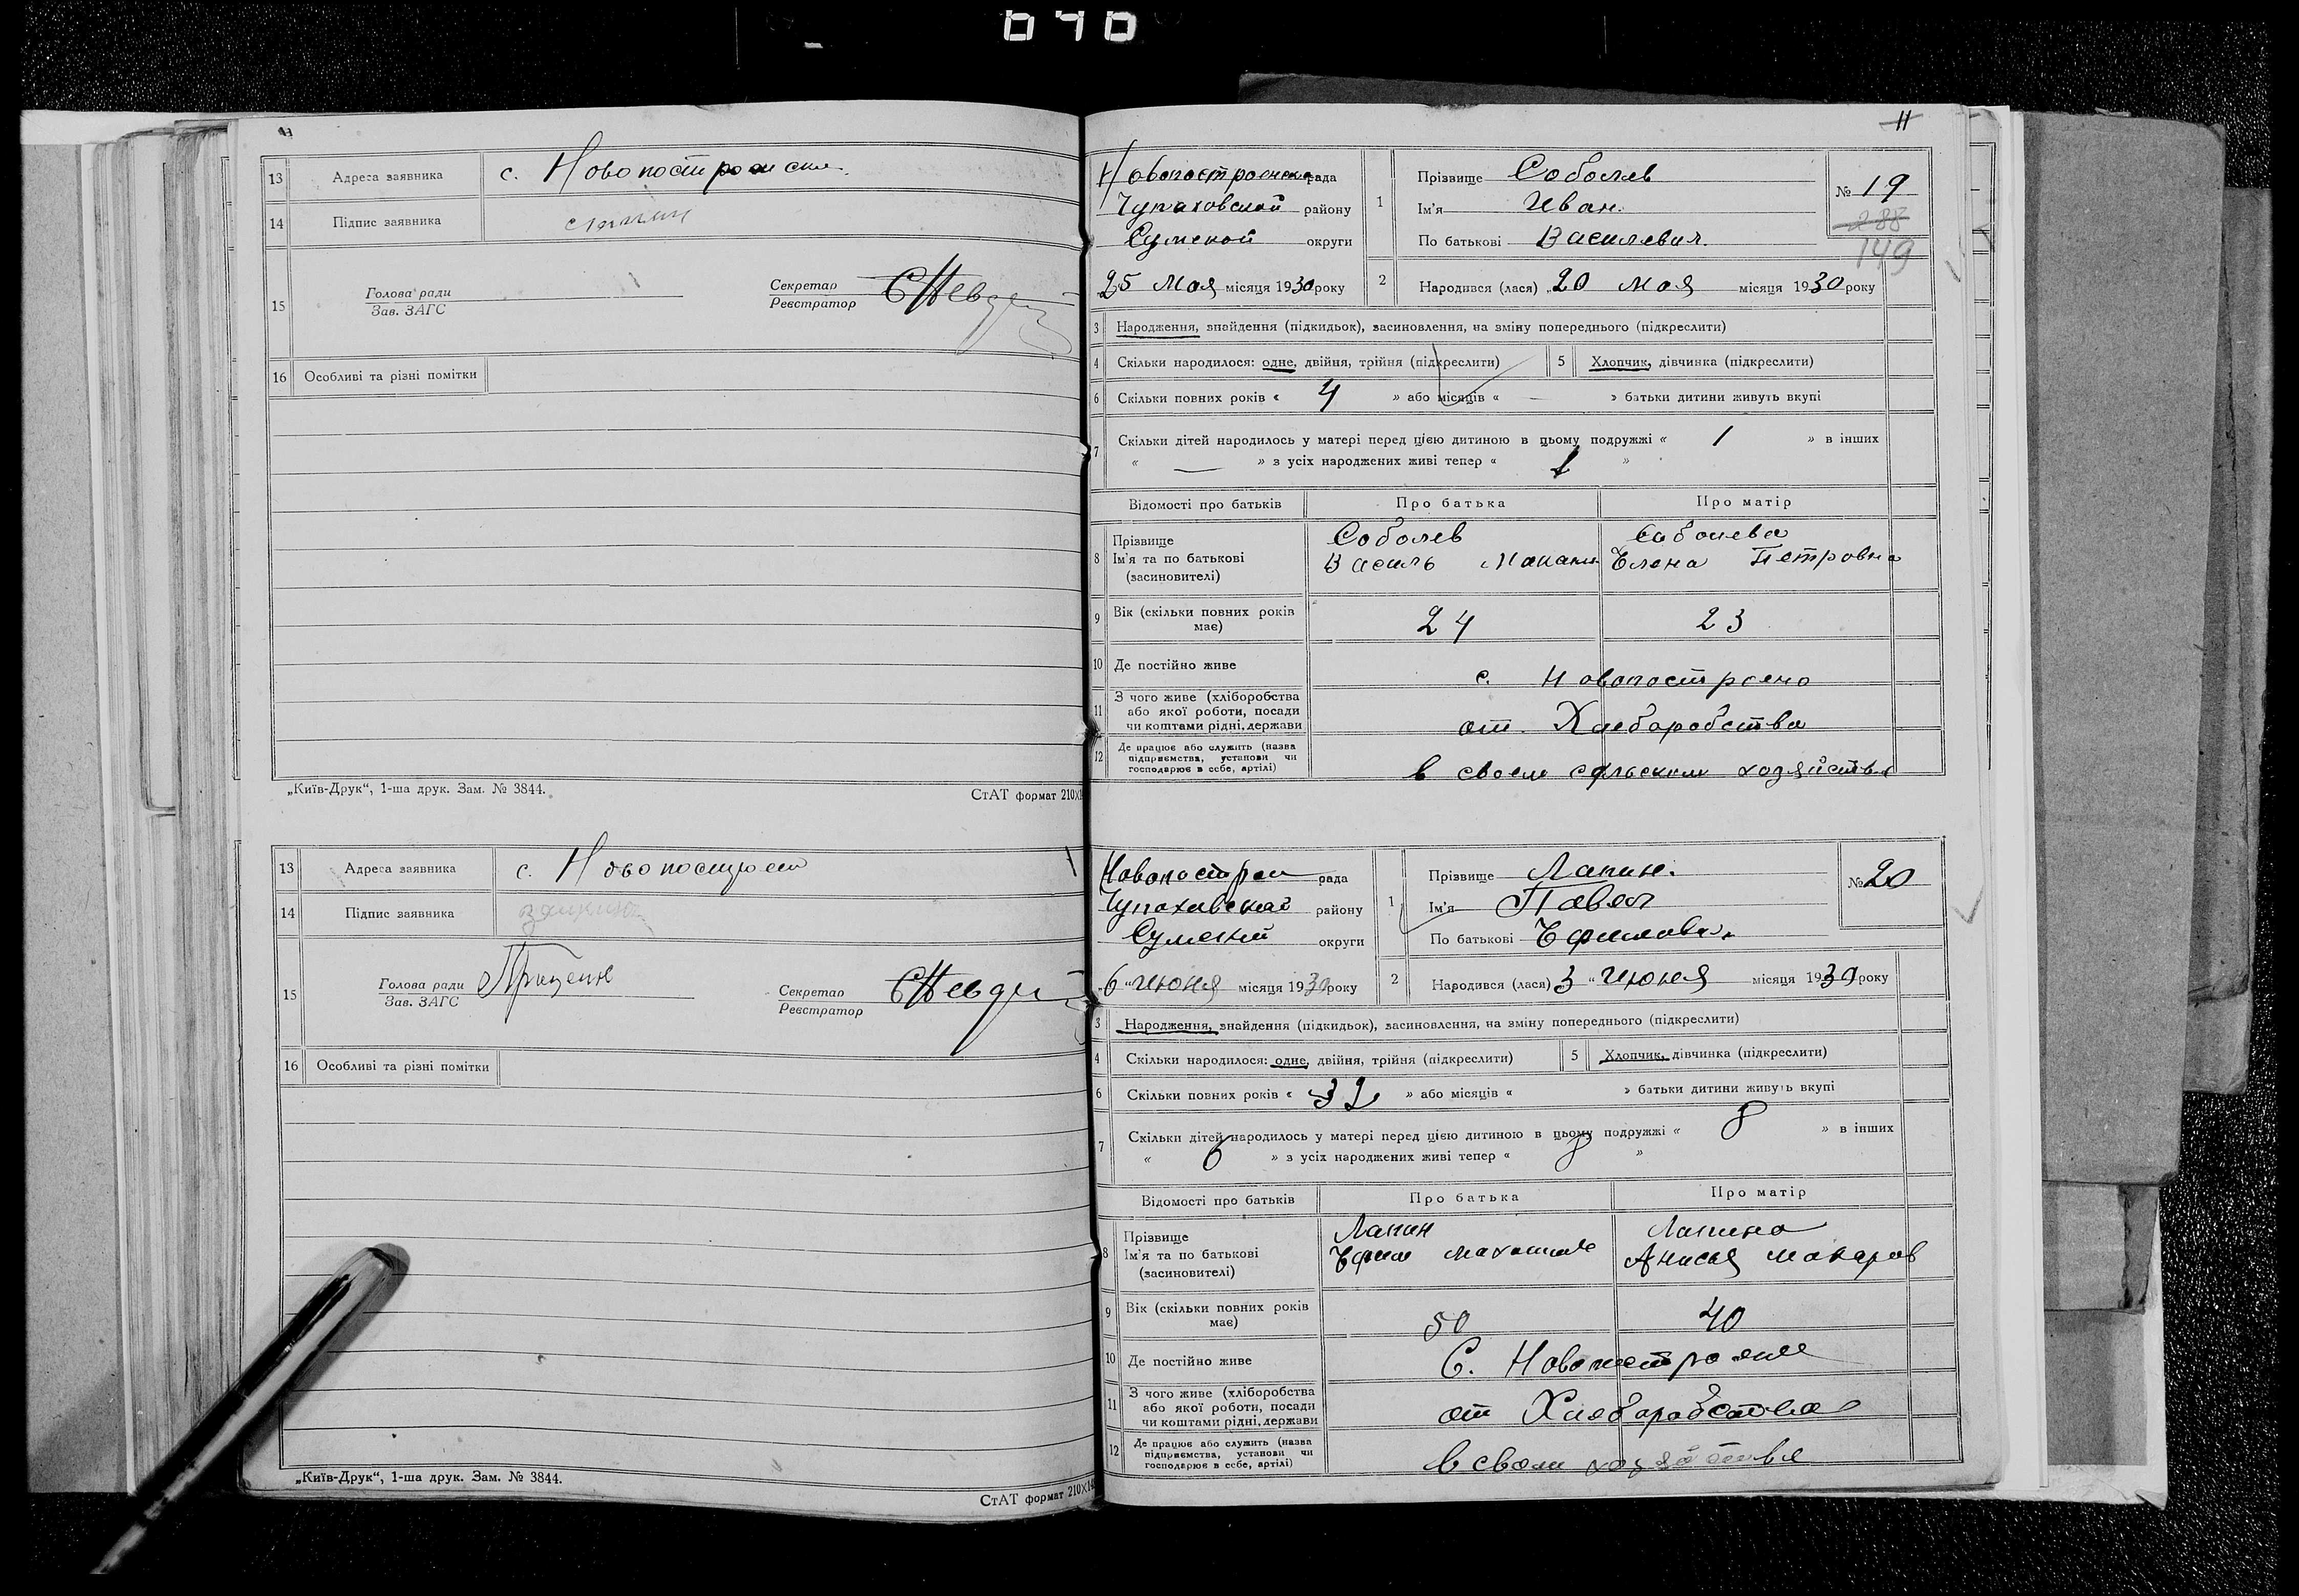 040
11
13 Адреса заявника с. Новопостроенск
14 Підпис заявника
15 Голова ради
Зав. ЗАГС
Секретар
Реєстратор
16 Особливі та різні помітки
„Київ-Друк“, 1-ша друк. Зам. № 3844.
СтАТ формат 210X1
13 Адреса заявника с. Новопостроен
14 Підпис заявника
15 Голова ради
Зав. ЗАГС
Секретар
Реєстратор
16 Особливі та різні помітки
„Київ-Друк“, 1-ша друк. Зам. № 3844.
СтАТ формат 210X14
Новопостроенска рада
Чупаховской району
Сумской округи
25 Мая місяця 1930 року
1 Прізвище Соболев
Ім'я Иван.
По батькові Василевич.
№ 19
288
149
2 Народився (лася) „20 Мая місяця 1930 року
3 Народження, знайдення (підкидьок), засиновлення, на зміну попереднього (підкреслити)
4 Скільки народилося: одне, двійня, трійня (підкреслити) 5 Хлопчик, дівчинка (підкреслити)
6 Скільки повних років « 4 » або місяців « — » батьки дитини живуть вкупі
7 Скільки дітей народилось у матері перед цією дитиною в цьому подружжі « 1 » в інших
« — » з усіх народжених живі тепер « 1 »
Відомості про батьків Про батька Про матір
8 Прізвище Соболев Соболева
Ім'я та по батькові Василь Елена Петровна
(засиновителі)
9 Вік (скільки повних років 24 23
має)
10 Де постійно живе с. Новопостроено
11 З чого живе (хліборобства
або якої роботи, посади
чи коштами рідні, держави от Хлеборобства
12 Де працює або служить (назва
підприємства, установи чи
господарює в себе, артілі) в своем сельском хозяйстве
Новопострои рада
Чупаховской району
Сумский округи
„6 “ Июня місяця 1930 року
1 Прізвище Лапин.
Ім'я Павел
По батькові Ефимов.
№ 20
2 Народився (лася) 3 “ Июня місяця 1930 року
3 Народження, знайдення (підкидьок), засиновлення, на зміну попереднього (підкреслити)
4 Скільки народилося: одне, двійня, трійня (підкреслити) 5 Хлопчик, дівчинка (підкреслити)
6 Скільки повних років « 32 » або місяців « » батьки дитини живуть вкупі
7 Скільки дітей народилось у матері перед цією дитиною в цьому подружжі « 8 » в інших
« » з усіх народжених живі тепер « »
Відомості про батьків Про батька Про матір
8 Прізвище Лапин Лапина
Ім'я та по батькові Ефим Анисья Макаров
(засиновителі)
9 Вік (скільки повних років 50 40
має)
10 Де постійно живе С. Новопостроение
11 З чого живе (хліборобства
або якої роботи, посади
чи коштами рідні, держави от Хлеборобства
12 Де працює або служить (назва
підприємства, установи чи
господарює в себе, артілі) в своем хозяйстве